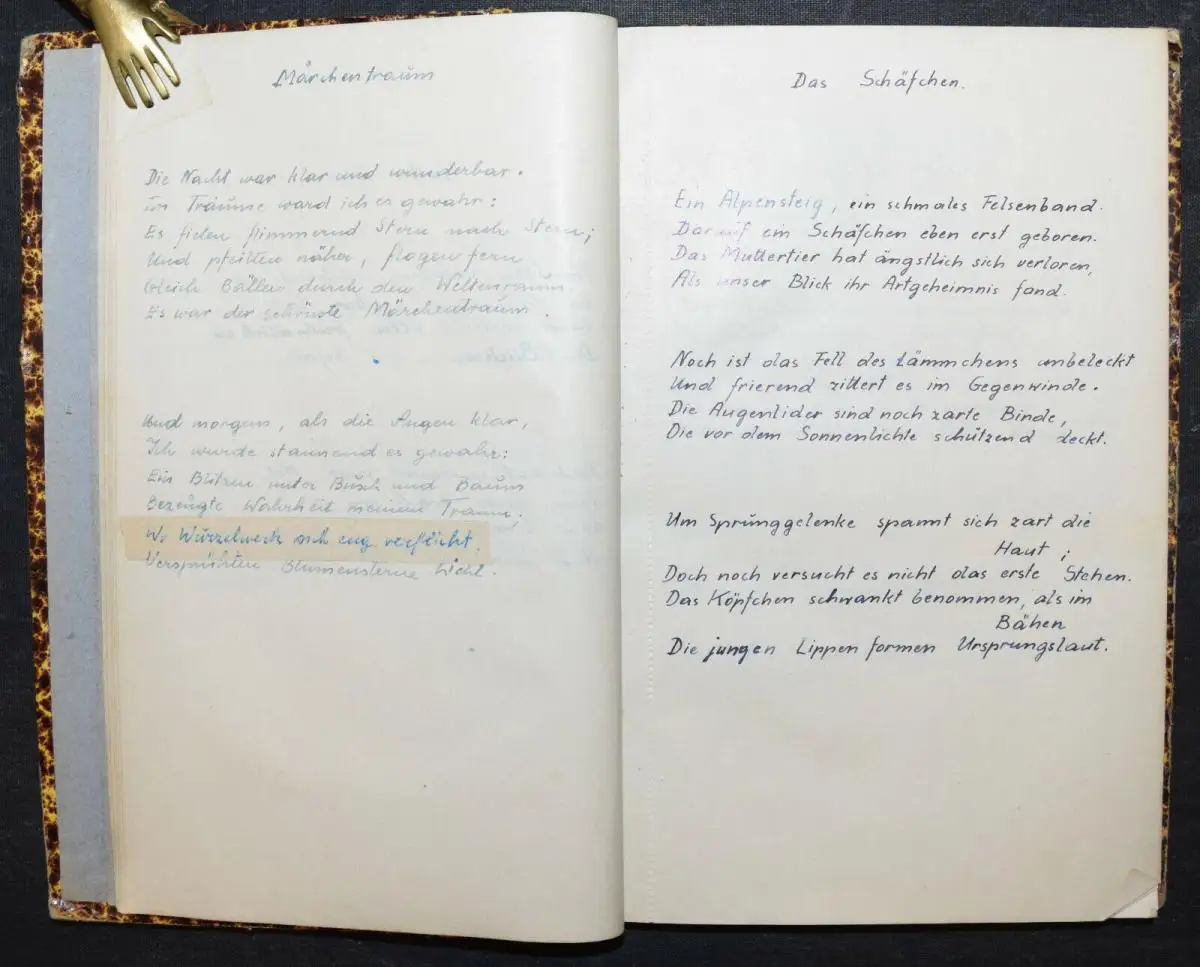 Märchentraum
Die Nacht war klar und wunderbar.
im Traume ward ich es gewahr:
Es fielen flimmernd Stern nach Stern;
Und pfeilten näher, flogen fern
Gleich Bällen durch den Weltenraum.
Es war der schönste Märchentraum.
Und morgens, als die Augen klar,
Ich wurde staunend es gewahr:
Ein Blitzen unter Busch und Baum
Bezeugte Wahrheit meinem Traum;
Wo Wurzelwerk sich eng verflicht,
Versprühten Blumensterne Licht.
Das Schäfchen.
Ein Alpensteig, ein schmales Felsenband.
Darauf ein Schäfchen eben erst geboren.
Das Muttertier hat ängstlich sich verloren,
Als unser Blick ihr Artgeheimnis fand.
Noch ist das Fell des Lämmchens unbeleckt
Und frierend zittert es im Gegenwinde.
Die Augenlider sind noch zarte Binde,
Die vor dem Sonnenlichte schützend deckt.
Um Sprunggelenke spannt sich zart die
Haut;
Doch noch versucht es nicht das erste Stehen.
Das Köpfchen schwankt benommen, als im
Bähen
Die jungen Lippen formen Ursprungslaut.